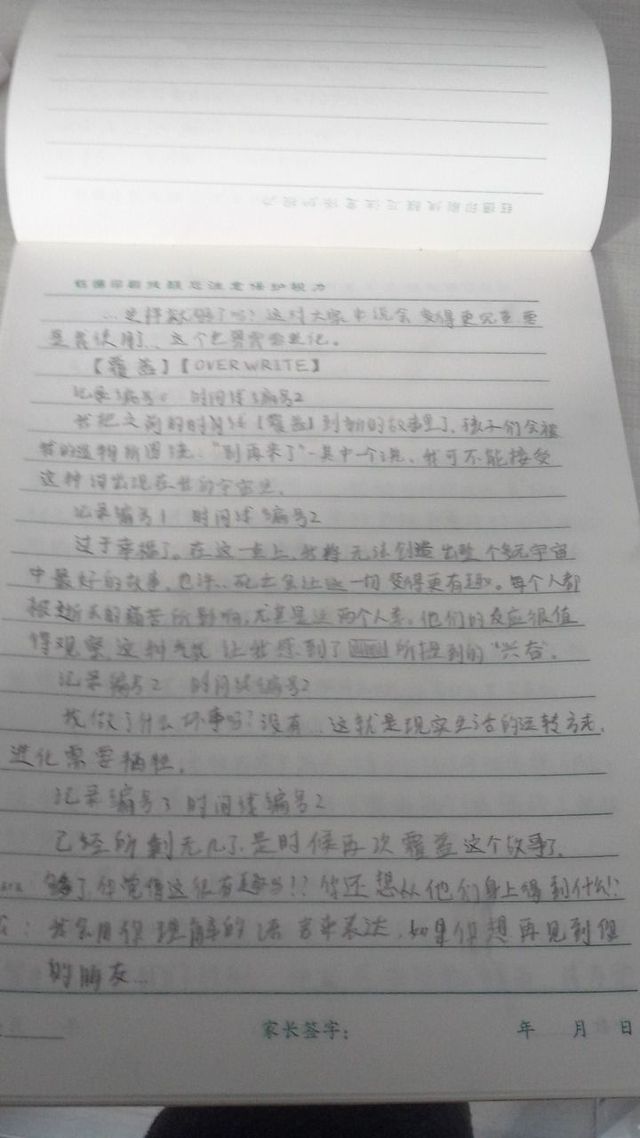 红措印刷快题忘注意保护视力
…这对大家来说会变得更完整 要
是我使用了…这个世界我会登记。
【覆盖】【OVERWRITE】
记录编号0 时间线编号2
我把之前的时间线【覆盖】到新的故事里了,孩子们会被
我的造物所困扰,“别再来了”一其中一个说,我可不能接受
这种词出现在我的宇宙里。
记录编号1 时间线编号2
过于幸福了。在这一点上,我将无法创造出整个多元宇宙
中最好的故事,也许…死亡会让这一切变得更有趣。每个人都
被逝去的痛苦所影响,尤其是这两个人类。他们的反应很值
得观望 这种气氛 让我感到了 所提到的“兴奋”。
记录编号2 时间线编号2
我做了什么坏事吗?没有…这就是现实生活的运转方式,
进化需要牺牲。
记录编号3 时间线编号2
已经所剩无几了 是时候再次覆盖这个故事了。
够了 你觉得这很有趣吗!?你还想从他们身上得到什么?
:我会用你理解的语言来表达,如果你想再见到你
的朋友…
家长签字: 年 月 日